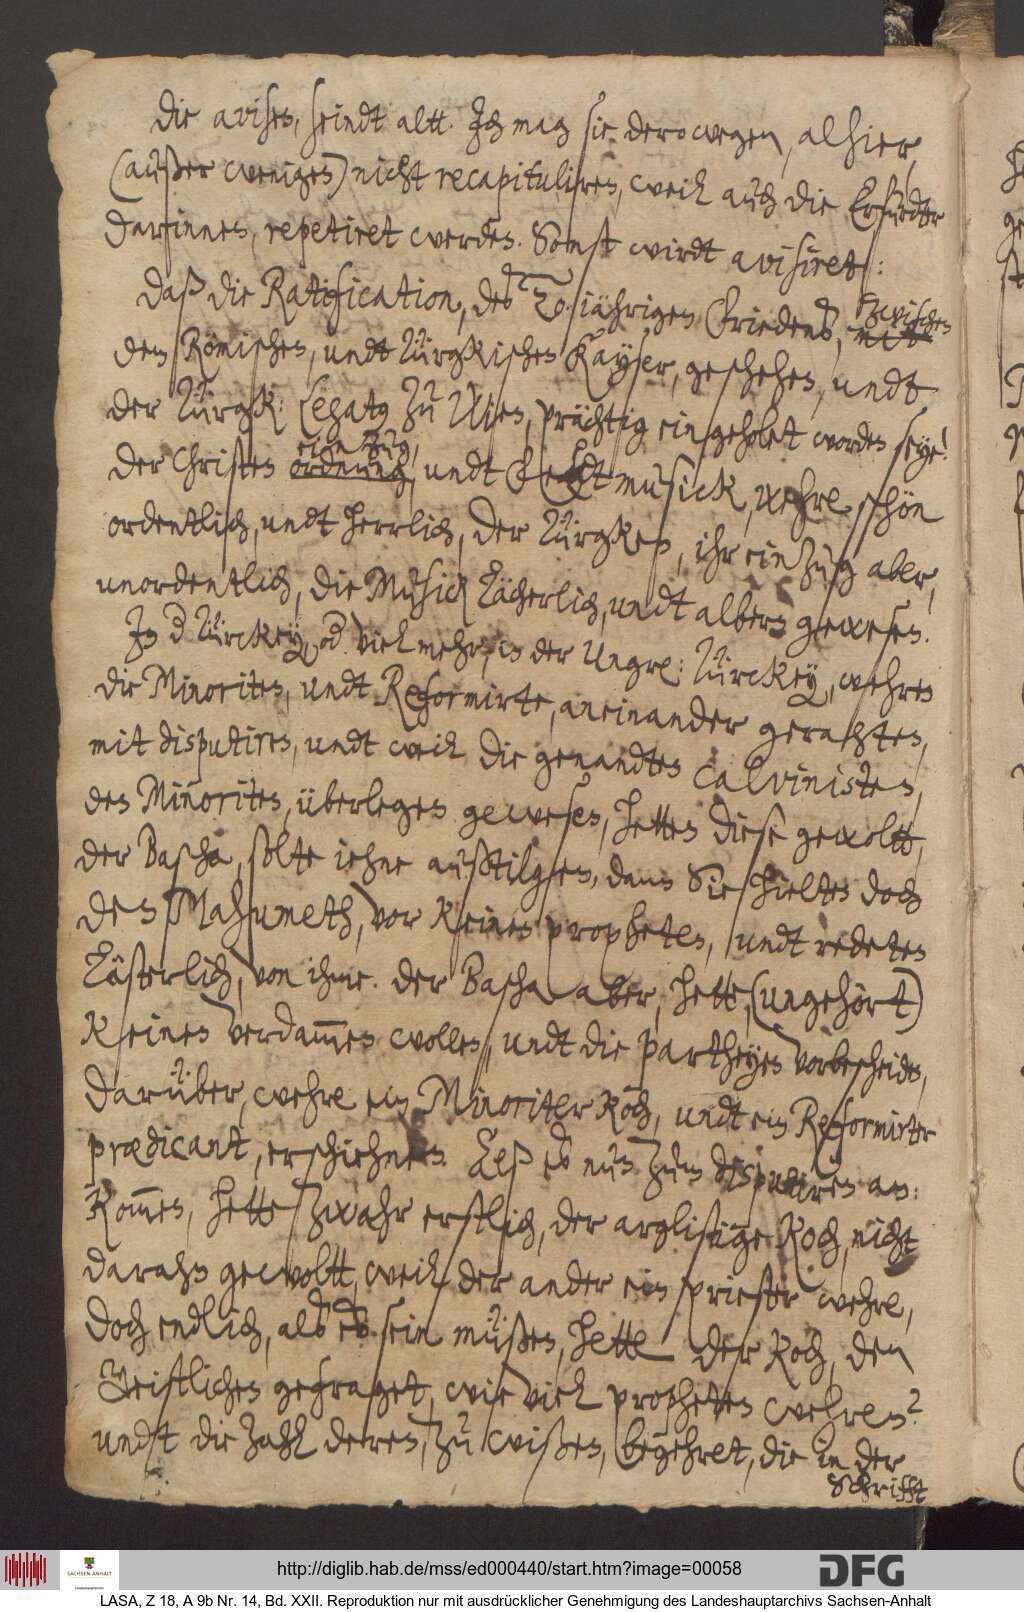 Die avisen, seindt altt. Ich mag sie derowegen, alhier,
(außer weniges) nicht recapituliren, weil auch die Erfurdter
darinnen, repetiret werden. Sonst wirdt avisiret:
Daß die Ratification, des 20.iährigen Friedens, mit zwischen
dem Römischen, undt Türgkischen Kayser, geschehen, undt
der Türgk: Legato zu Wien, prächtig eingeholet worden seye!
Der Christen ordnung einzug, undt Feldtmusick, wehre schön
ordentlich, undt herrlich, der Türgken, ihr einzug aber,
unordentlich, die Musick lächerlich, undt albern gewesen.
In d Türckey, od. viel mehr, in der Ungre: Türckey, wehren
die Minoriten, undt Reformirte, aneinander gerahten,
mit disputiren, undt weil die genandten Calvinisten,
den Minoriten, überlegen gewesen, hetten diese gewoltt,
der Bascha, solte iehne außtilgen, dann Sie hielten doch
den Mahumeth, vor keinen propheten, undt redeten
lästerlich, von ihme. Der Bascha aber, hette, (ungehört)
keinen verdammen wollen, undt die partheyen vorbescheiden,
darüber, wehre ein Minoriter Koch, undt ein Reformirter
prædicant, erschiehnen. Alß es nun zum disputiren an:
kommen, hette zwahr erstlich, der arglistige Koch, nicht
darahn gewoltt, weil der ander ein priester wehre,
doch endlich, als es sein müßen, hette der Koch, den
Geistlichen gefraget, wie viel propheten wehren?
undt die Zahl deren, zu wißen, begehret, die in der
Schrifft
http://diglib.hab.de/mss/ed000440/start.htm?image=00058
SACHSEN-ANHALT
DFG
LASA, Z 18, A 9b Nr. 14, Bd. XXII. Reproduktion nur mit ausdrücklicher Genehmigung des Landeshauptarchivs Sachsen-Anhalt